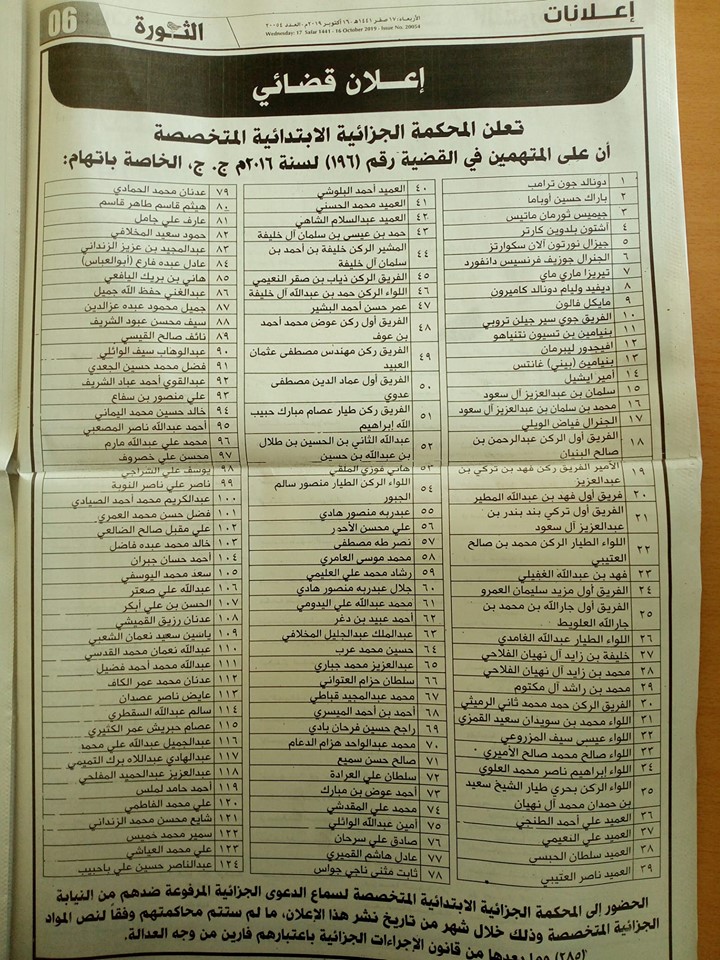 إعـلانات
الأربعاء: ١٧ صفر ١٤٤١هـ - ١٦ أكتوبر ٢٠١٩م - العدد ٢٠٠٥٤
Wednesday: 17 Safar 1441 - 16 October 2019 - Issue No. 20054
الثـورة
06
إعـلان قضـائي
تعلن المحكمة الجزائية الابتدائية المتخصصة
أن على المتهمين في القضية رقم (١٩٦) لسنة ٢٠١٦م ج. ج، الخاصة باتهام:
١ دونالد جون ترامب
٢ باراك حسين أوباما
٣ جيميس ثورمان ماتيس
٤ أشتون بلدوين كارتر
٥ جيزال نورتون آلان سكوارتز
٦ الجنرال جوزيف فرنسيس دانفورد
٧ تيريزا ماري ماي
٨ ديفيد وليام دونالد كاميرون
٩ مايكل فالون
١٠ الفريق جوي سير جيلن تروبي
١١ بنيامين بن تسيون نتنياهو
١٢ افيجدور ليبرمان
١٣ بنيامين (بيني) غانتس
١٤ أمير ايشيل
١٥ سلمان بن عبدالعزيز آل سعود
١٦ محمد بن سلمان بن عبدالعزيز آل سعود
١٧ الجنرال فياض الويلي
١٨ الفريق أول الركن عبدالرحمن بن
صالح البنيان
١٩ الأمير الفريق ركن فهد بن تركي بن
عبدالعزيز
٢٠ فريق أول فهد بن عبدالله المطير
٢١ الفريق أول تركي بند بندر بن
عبدالعزيز آل سعود
٢٢ اللواء الطيار الركن محمد بن صالح
العتيبي
٢٣ فهد بن عبدالله الغفيلي
٢٤ الفريق أول مزيد سليمان العمرو
٢٥ الفريق أول جارالله بن محمد بن
جارالله العلويط
٢٦ اللواء الطيار عبدالله الغامدي
٢٧ خليفة بن زايد آل نهيان الفلاحي
٢٨ محمد بن زايد آل نهيان الفلاحي
٢٩ محمد بن راشد آل مكتوم
٣٠ الفريق الركن حمد محمد ثاني الرميثي
٣١ اللواء محمد بن سويدان سعيد القمزي
٣٢ اللواء عيسى سيف المزروعي
٣٣ اللواء صالح محمد صالح الأميري
٣٤ اللواء إبراهيم ناصر محمد العلوي
٣٥ اللواء الركن بحري طيار الشيخ سعيد
بن حمدان محمد آل نهيان
٣٦ العميد علي أحمد الطنجي
٣٧ العميد علي النعيمي
٣٨ العميد سلطان الحبسي
٣٩ العميد ناصر العتيبي
٤٠ العميد أحمد البلوشي
٤١ العميد محمد الحسني
٤٢ العميد عبدالسلام الشاهي
٤٣ حمد بن عيسى بن سلمان آل خليفة
٤٤ المشير الركن خليفة بن أحمد بن
سلمان آل خليفة
٤٥ الفريق الركن ذياب بن صقر النعيمي
٤٦ اللواء الركن حمد بن عبدالله آل خليفة
٤٧ عمر حسن أحمد البشير
٤٨ الفريق أول ركن عوض محمد أحمد
بن عوف
٤٩ الفريق ركن مهندس مصطفى عثمان
العبيد
٥٠ الفريق أول عماد الدين مصطفى
عدوي
٥١ الفريق ركن طيار عصام مبارك حبيب
الله إبراهيم
٥٢ عبدالله الثاني بن الحسين بن طلال
بن عبدالله بن حسين
٥٣ هاني فوزي الملقي
٥٤ اللواء الركن الطيار منصور سالم
الجبور
٥٥ عبدربه منصور هادي
٥٦ علي محسن الأحمر
٥٧ نصر طه مصطفى
٥٨ محمد موسى العامري
٥٩ رشاد محمد علي العليمي
٦٠ جلال عبدربه منصور هادي
٦١ محمد عبدالله علي اليدومي
٦٢ أحمد عبيد بن دغر
٦٣ عبدالملك عبدالجليل المخلافي
٦٤ حسين محمد عرب
٦٥ عبدالعزيز محمد جباري
٦٦ سلطان حزام العتواني
٦٧ محمد عبدالمجيد قباطي
٦٨ أحمد بن أحمد الميسري
٦٩ راجح حسين فرحان بادي
٧٠ محمد عبدالواحد هزام الدعام
٧١ صالح حسن سميع
٧٢ سلطان علي العرادة
٧٣ أحمد عوض بن مبارك
٧٤ محمد علي المقدشي
٧٥ أمين عبدالله الوائلي
٧٦ صادق علي سرحان
٧٧ عادل هاشم القميري
٧٨ ثابت مثنى ناجي جواس
٧٩ عدنان محمد الحمادي
٨٠ هيثم قاسم طاهر قاسم
٨١ عارف علي جامل
٨٢ حمود سعيد المخلافي
٨٣ عبدالمجيد بن عزيز الزنداني
٨٤ عادل عبده فارع (أبوالعباس)
٨٥ هاني بن بريك اليافعي
٨٦ عبدالغني حفظ الله جميل
٨٧ جميل محمود عبده عزالدين
٨٨ سيف محسن عبود الشريف
٨٩ نائف صالح القيسي
٩٠ عبدالوهاب سيف الوائلي
٩١ فضل محمد حسين الجعدي
٩٢ عبدالقوي أحمد عباد الشريف
٩٣ علي منصور بن سفاع
٩٤ خالد حسين محمد اليماني
٩٥ أحمد عبدالله ناصر المصعبي
٩٦ محمد علي عبدالله مارم
٩٧ محسن علي خصروف
٩٨ يوسف علي الشراجي
٩٩ ناصر علي ناصر النوبة
١٠٠ عبدالكريم محمد أحمد الصيادي
١٠١ فضل حسن محمد العمري
١٠٢ علي مقبل صالح الضالعي
١٠٣ خالد محمد عبده فاضل
١٠٤ أحمد حسان جبران
١٠٥ سعد محمد اليوسفي
١٠٦ عبدالله علي صعتر
١٠٧ الحسن بن علي أبكر
١٠٨ عدنان رزيق القميشي
١٠٩ ياسين سعيد نعمان الشعبي
١١٠ عبدالله نعمان محمد القدسي
١١١ عبدالله محمد أحمد فضيل
١١٢ عدنان محمد عمر الكاف
١١٣ عايض ناصر عصدان
١١٤ سالم عبدالله السقطري
١١٥ عصام حبريش عمر الكثيري
١١٦ عبدالجميل عبدالله علي محمد
١١٧ عبدالهادي عبداللاه برك التميمي
١١٨ عبدالعزيز عبدالحميد المفلحي
١١٩ أحمد حامد لملس
١٢٠ علي محمد الفاطمي
١٢١ شايع محسن محمد الزنداني
١٢٢ سمير محمد خميس
١٢٣ علي محمد العياشي
١٢٤ عبدالناصر حسين علي باحبيب
الحضور إلى المحكمة الجزائية الابتدائية المتخصصة لسماع الدعوى الجزائية المرفوعة ضدهم من النيابة
الجزائية المتخصصة وذلك خلال شهر من تاريخ نشر هذا الإعلان، ما لم ستتم محاكمتهم وفقا لنص المواد
(٢٨٥) وما بعدها من قانون الإجراءات الجزائية باعتبارهم فارين من وجه العدالة.